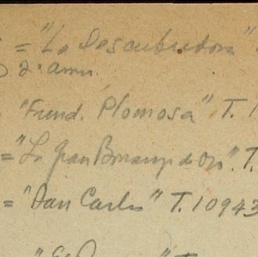 = "La Descubridora"
"Fund. Plomosa" T. 1
= "La gran Bonanza de Oro". T.
= "San Carlos" T. 10943